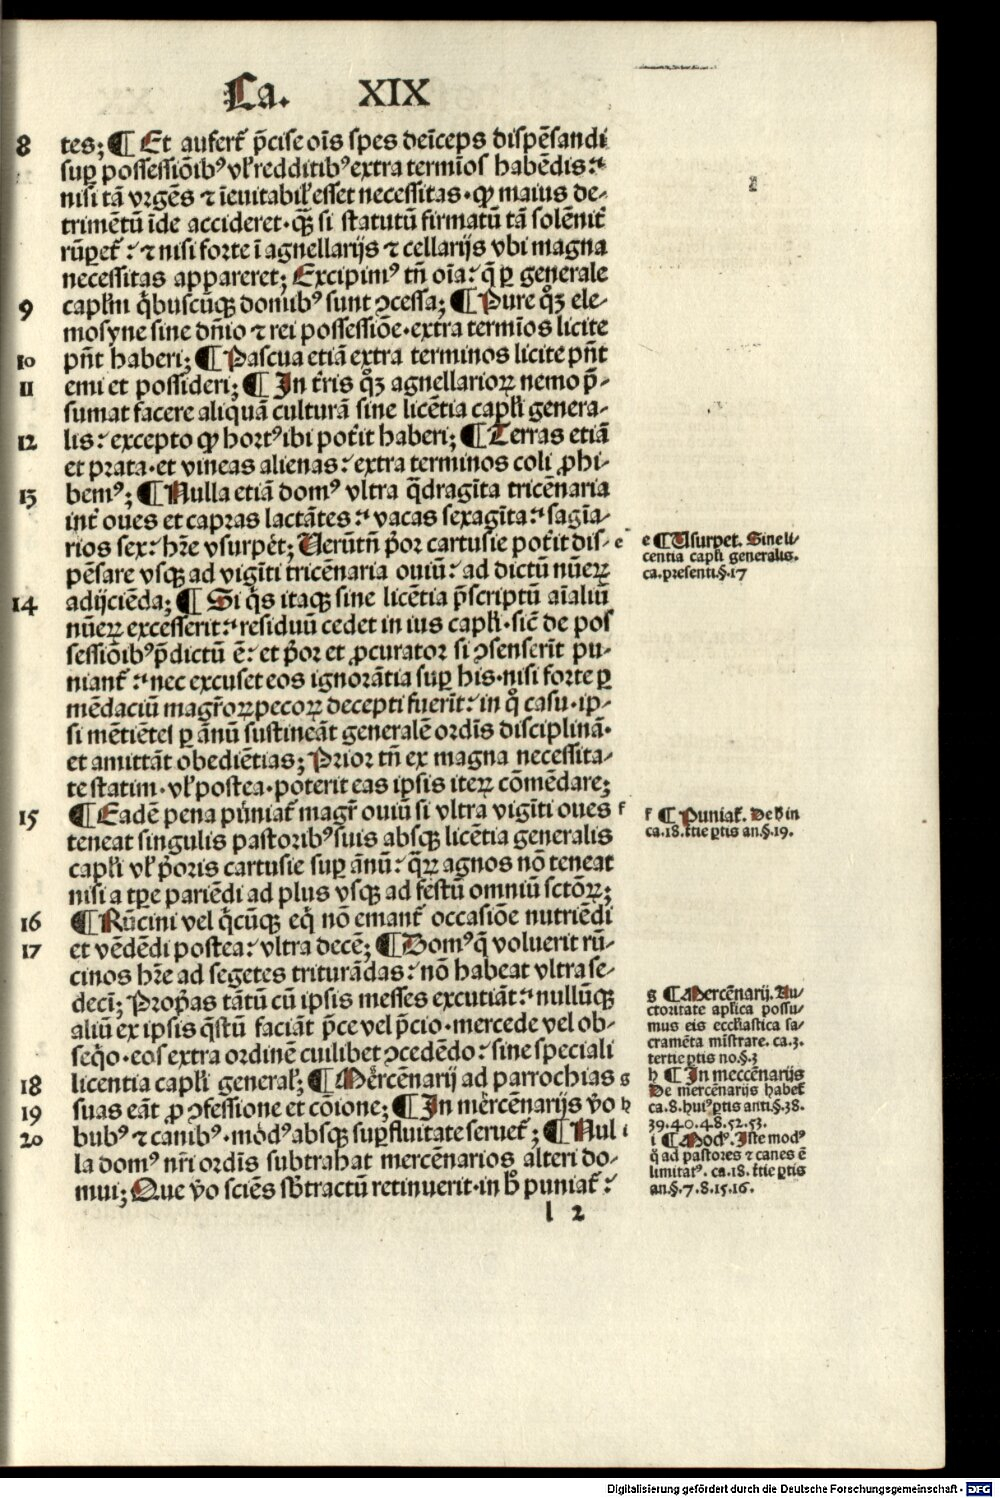 Ca. XIX
8 tes; ¶ Et aufert᷒ p̄cise oīs spes deīceps dispēsandi
suꝑ possessiōibꝰ vl̓ redditibꝰ extra termīos habēdis:
nisi tā vrgēs ⁊ īeuitabil̓ esset necessitas· ꝙ maius de-
trimētū īde accideret· q̄ꝫ si statutū firmatū tā solēnit᷒
rūꝑet᷒: ⁊ nisi forte ī agnellarijs ⁊ cellarijs vbi magna
necessitas appareret; Excipimꝰ tn̄ oīa: q̄ ꝑ generale
9 capl̓m q̓buscūqꝫ domibꝰ sunt ꝯcessa; ¶ Pure qͦꝫ ele-
mosyne sine dn̄io ⁊ rei possessiōe· extra termīos licite
10 pn̄t haberi; ¶ Pascua etiā extra terminos licite pn̄t
11 emi et possideri; ¶ In t᷒ris qͦꝫ agnellarioꝝ nemo p̄-
sumat facere aliquā culturā sine licētia capl̓i genera-
12 lis: excepto ꝙ hortꝰ ibi pot᷒it haberi; ¶ Terras etiā
et prata· et vineas alienas: extra terminos coli ꝓhi-
13 bemꝰ; ¶ Nulla etiā domꝰ vltra q̄dragīta tricēnaria
int᷒ oues et capras lactātes: vacas sexagīta: sagīa-
rios sex: hr̄e vsurpet; Uerūtn̄ p̓or cartusie pot᷒it dis- e
pēsare vsqꝫ ad vigīti tricēnaria ouiū: ad dictū nūeꝝ
14 adijciēda; ¶ Si q̓s itaqꝫ sine licētia p̄scriptū aīaliū
nūeꝝ excesserit: residuū cedet in ius capl̓i· sic̄ de pos
sessiōibꝰ p̄dictū ē: et p̓or et ꝓcurator si ꝯsenserīt pu-
niant᷒: nec excuset eos ignorātia suꝑ his· nisi forte ꝑ
mēdaciū magr̓oꝝ pecoꝝ decepti fuerīt: in qͦ casu· ip-
si mētiētes ꝑ ānū sustineāt generalē ordīs disciplinā·
et amittāt obediētias; Prior tn̄ ex magna necessita-
te statim· vl̓ postea· poterit eas ipsis iteꝝ cōmēdare;
15 ¶ Eadē pena puniat᷒ magr̓ ouiū si vltra vigīti oues f
teneat singulis pastoribꝰ suis absqꝫ licētia generalis
capl̓i vl̓ p̓oris cartusie suꝑ ānū: q̄ꝝ agnos nō teneat
nisi a tꝑe pariēdi ad plus vsqꝫ ad festū omniū sctōꝝ;
16 ¶ Rūcini vel q̓cūqꝫ eq̓ nō emant᷒ occasiōe nutriēdi
17 et vēdēdi postea: vltra decē; ¶ Domꝰ q̄ voluerit rū-
cinos hr̄e ad segetes triturādas: nō habeat vltra se-
decī; Prop̓as tātū cū ipsis messes excutiāt: nullūqꝫ
aliū ex ipsis q̄stū faciāt p̄ce vel p̄cio· mercede vel ob-
seq̓o· eos extra ordinē cuilibet ꝯcedēdo: sine speciali
18 licentia capl̓i general̓; ¶ Mercēnarij ad parrochias g
19 suas eāt ꝓ ꝯfessione et cōione; ¶ In mercēnarijs v̓o h
20 bubꝰ ⁊ canibꝰ· modꝰ absqꝫ suꝑfluitate seruet᷒; ¶ Nul i
la domꝰ nr̄i ordīs subtrahat mercēnarios alteri do-
mui; Que v̓o sciēs sb̓tractū retinuerit· in hͦ puniat᷒:
l 2
e ¶ Usurpet. Sine li-
centia capl̓i generalis.
ca. presenti.§.17
f ¶ Puniat᷒. De h̓ in
ca.18. t᷒tie ꝑtis an.§.19.
g ¶ Mercēnarij. Au-
ctoritate apl̓ica possu-
mus eis eccl̓iastica sa-
cramēta mīstrare. ca.3.
tertie ꝑtis no.§.3
h ¶ In meccēnarijs
De mercēnarijs habet᷒
ca.8. huiꝰ ꝑtis anti.§.38.
39.40.48.52.53.
i ¶ Modꝰ. Iste modꝰ
q̓ ad pastores ⁊ canes ē
limitatꝰ. ca.18. t᷒tie ꝑtis
an.§.7.8.15.16.
Digitalisierung gefördert durch die Deutsche Forschungsgemeinschaft - DFG